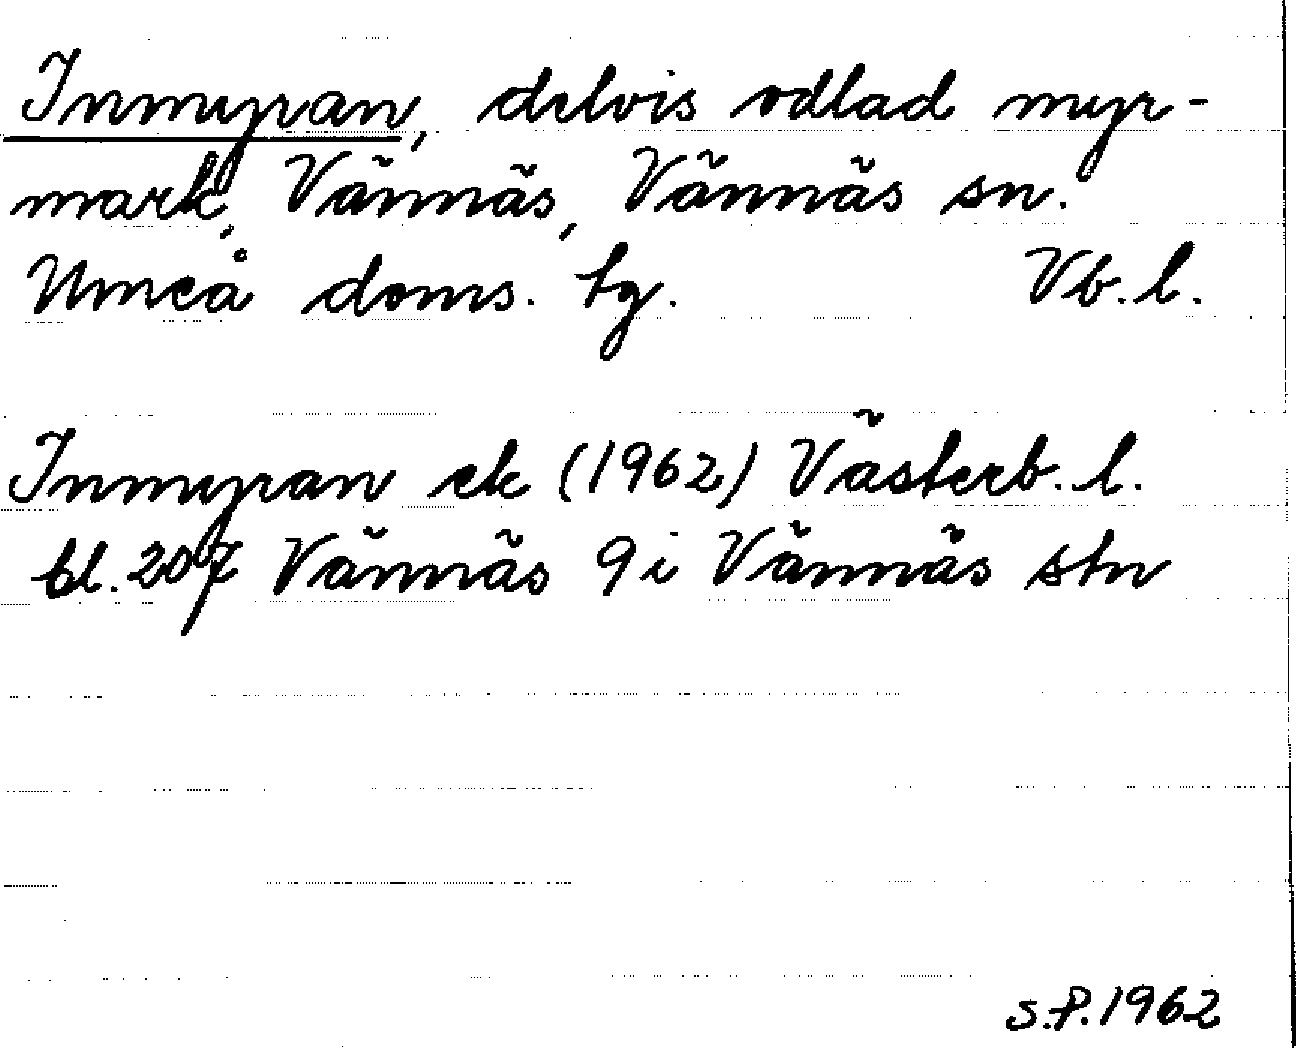 Inmyran, delvis odlad myr-
mark, Vännäs, Vännäs sn.
Umeå doms. tg. Vb. l.
Inmyran ek (1962) Västerb. l.
bl. 207 Vännäs 9i Vännäs stn
S.P. 1962